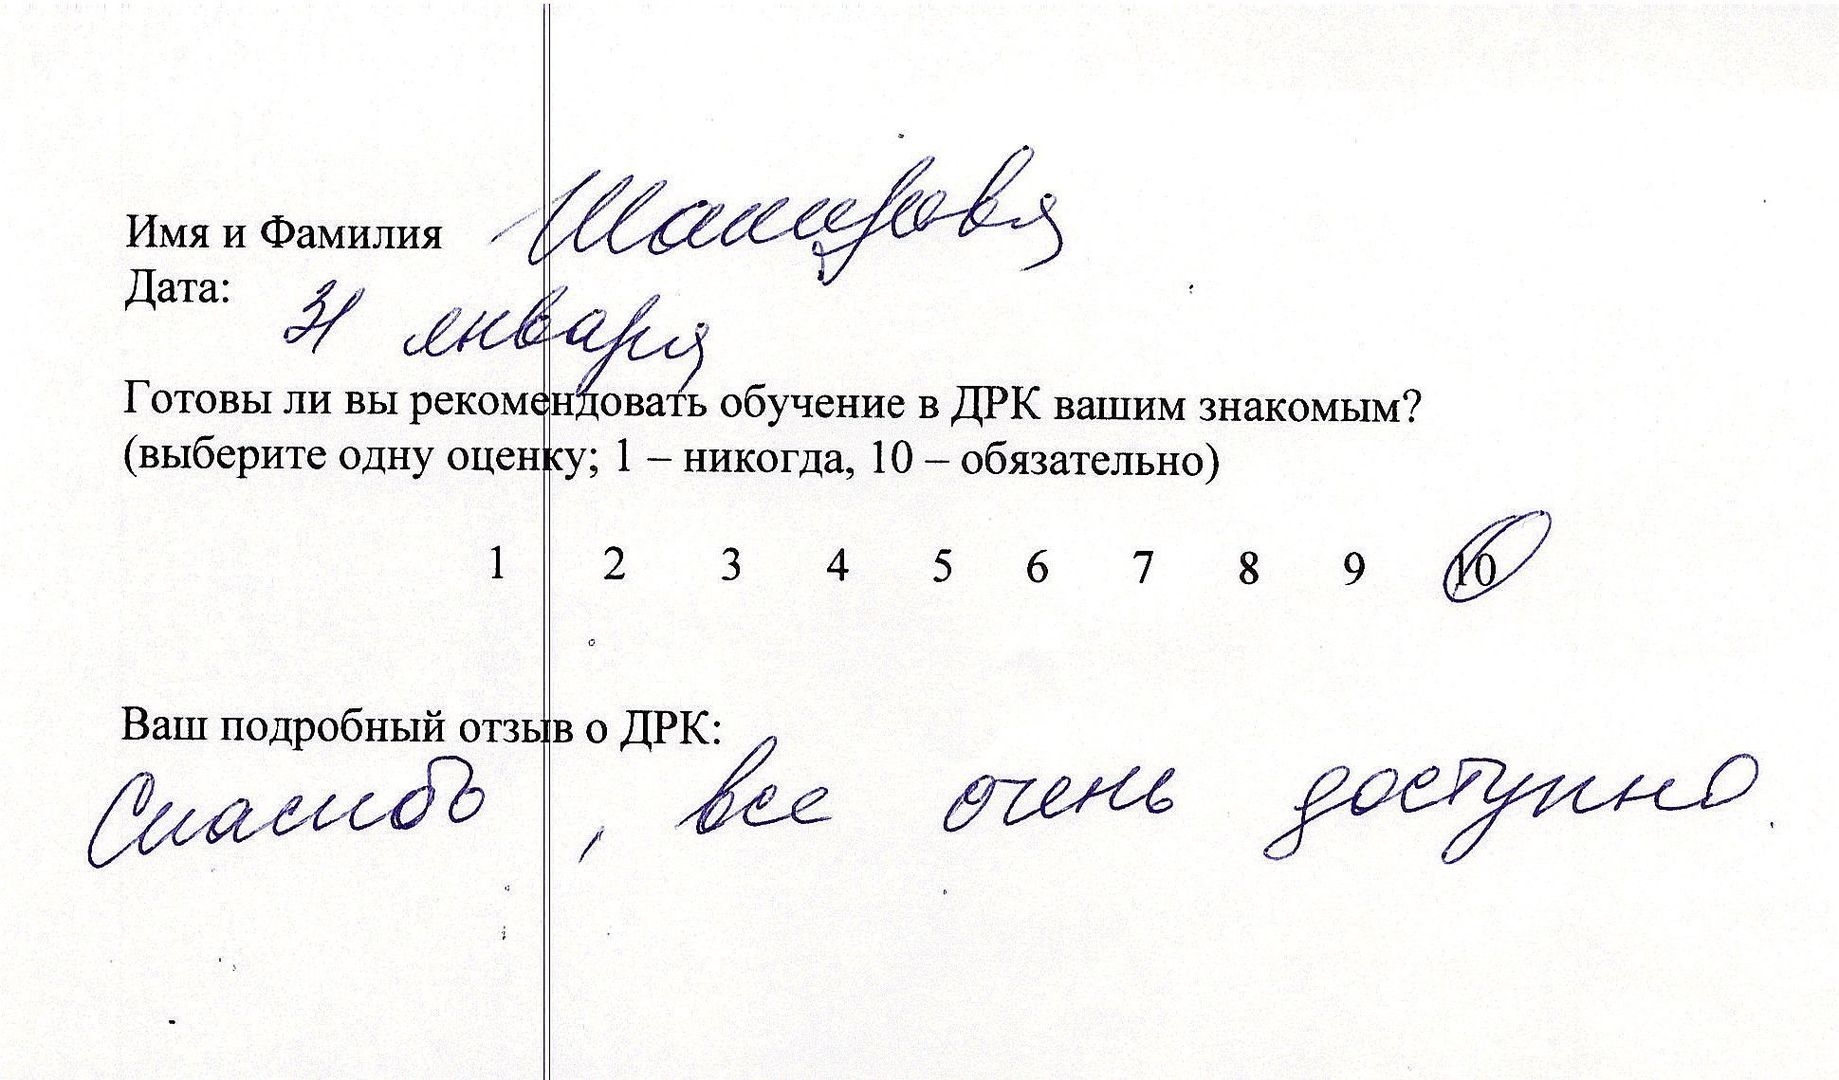 Имя и Фамилия
Дата: 31 января
Готовы ли вы рекомендовать обучение в ДРК вашим знакомым?
(выберите одну оценку; 1 – никогда, 10 – обязательно)
1 2 3 4 5 6 7 8 9 10
Ваш подробный отзыв о ДРК:
Спасибо, все очень доступно.